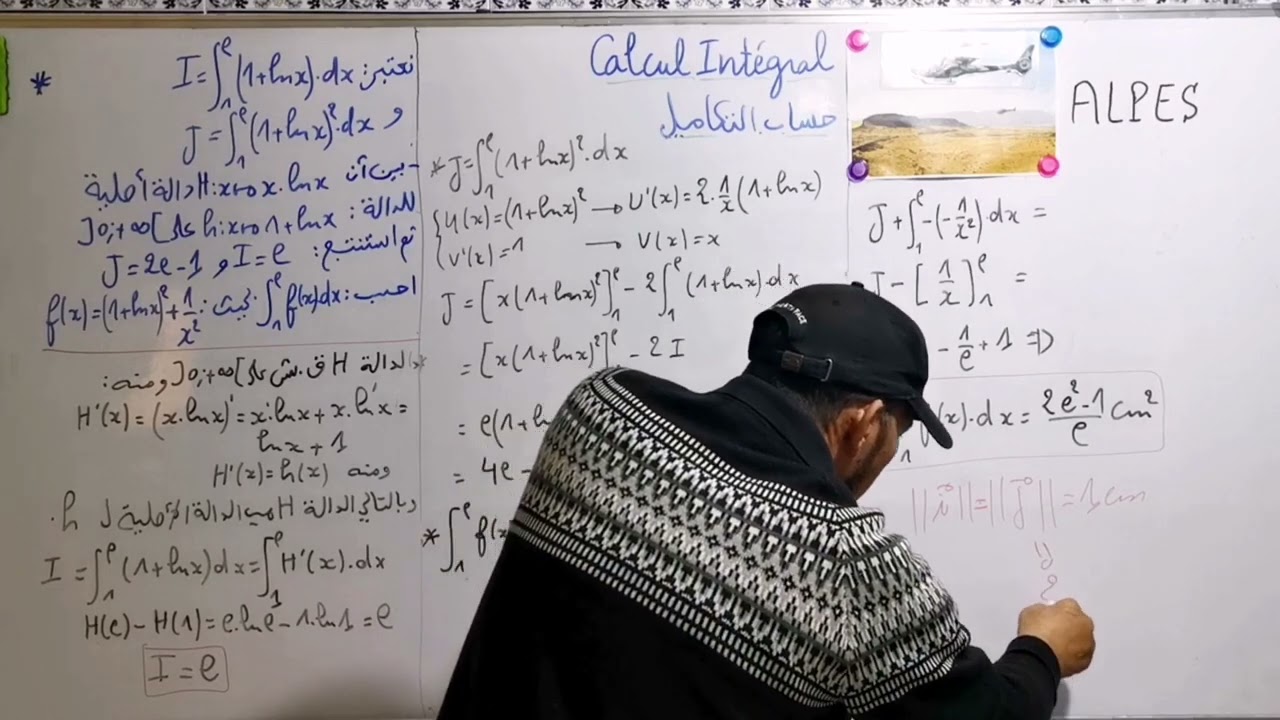 * نعتبر: I = ∫₁ᵉ (1+lnx).dx
و J = ∫₁ᵉ (1+lnx)².dx
- بين أن H: x↦x.lnx دالة أصلية
للدالة: h: x↦1+lnx على ]0;+∞[
ثم استنتج: I = e و J = 2e-1
احسب: ∫₁ᵉ f(x)dx بحيث: f(x) = (1+lnx)² + 1/x²
الدالة H ق.ش على ]0;+∞[ ومنه:
H'(x) = (x.lnx)' = x'.lnx + x.ln'x =
lnx + 1
ومنه H'(x) = h(x)
وبالتالي الدالة H هي الدالة الأصلية ل h.
I = ∫₁ᵉ (1+lnx)dx = ∫₁ᵉ H'(x).dx
H(e) - H(1) = e.lne - 1.ln1 = e
I = e
Calcul Intégral
حساب التكامل
* J = ∫₁ᵉ (1+lnx)².dx
{ U(x) = (1+lnx)² → U'(x) = 2.1/x(1+lnx)
V'(x) = 1 → V(x) = x
J = [x(1+lnx)²]₁ᵉ - 2∫₁ᵉ (1+lnx).dx
= [x(1+lnx)²]₁ᵉ - 2I
= e(1+ln
= 4e -
* ∫₁ᵉ f(x
ALPES
J + ∫₁ᵉ -(-1/x²).dx =
J - [1/x]₁ᵉ =
- 1/e + 1 ⇒
f(x).dx = (2e²-1)/e cm²
||i|| = ||j|| = 1cm
y
2